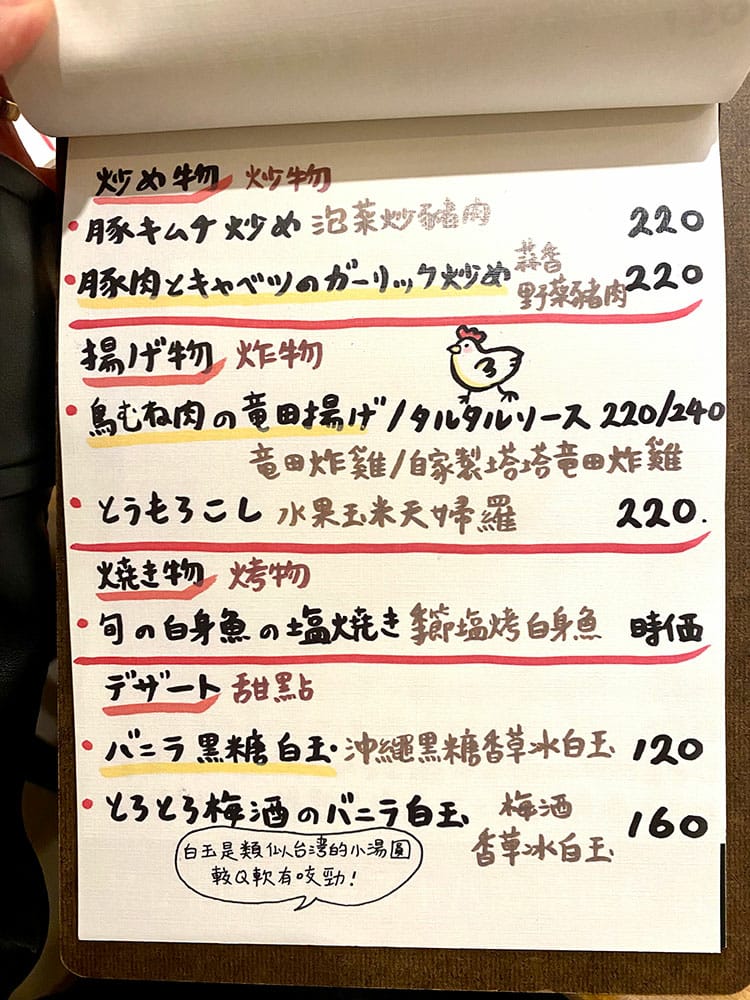 炒め物 炒物
豚キムチ炒め 泡菜炒豬肉 220
豚肉とキャベツのガーリック炒め 蒜香 野菜豬肉 220
揚げ物 炸物
鳥むね肉の竜田揚げ/タルタルソース 220/240
竜田炸雞/自家製塔塔竜田炸雞
とうもろこし 水果玉米天婦羅 220.
焼き物 烤物
旬の白身魚の塩焼き 季節塩烤白身魚 時価
デザート 甜點
バニラ黒糖白玉 沖繩黑糖香草冰白玉 120
とろとろ梅酒のバニラ白玉 梅酒 香草冰白玉 160
白玉是類似台湾的小湯圓
較Q軟有咬勁!